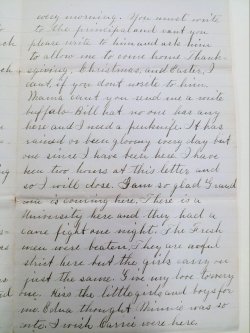 every morning. You must write
to the principal and cant you
please write to him and ask him
to allow me to come home Thanks-
giving, Christmas, and Easter, I
cant, if you dont write to him.
Mama cant you send me a white
buffalo Bill hat no one has any
here and I need a penknife. It has
rained or been gloomy every day but
one since I have been here. I have
been two hours at this letter and
so I will close. I am so glad
is coming here. There is a
University here and they had a
cane fight one night. The Fresh
men were beaten. They are awful
strict here but the girls carry on
just the same. Give my love to every
one. Kiss the little girls and boys for
me. Edna thought Minnie was so
I wish Carrie were here.